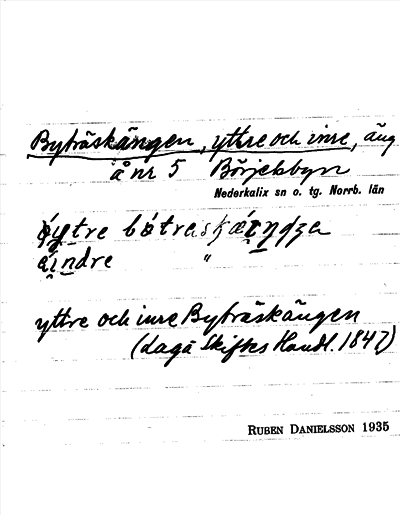 Byträskängen, yttre och inre, äng
å nr 5 Börjelsbyn
Nederkalix sn o. tg. Norrb. län
yttre
indre "
yttre och inre Byträskängen
(Laga Skiftes Handl. 1847)
RUBEN DANIELSSON 1935